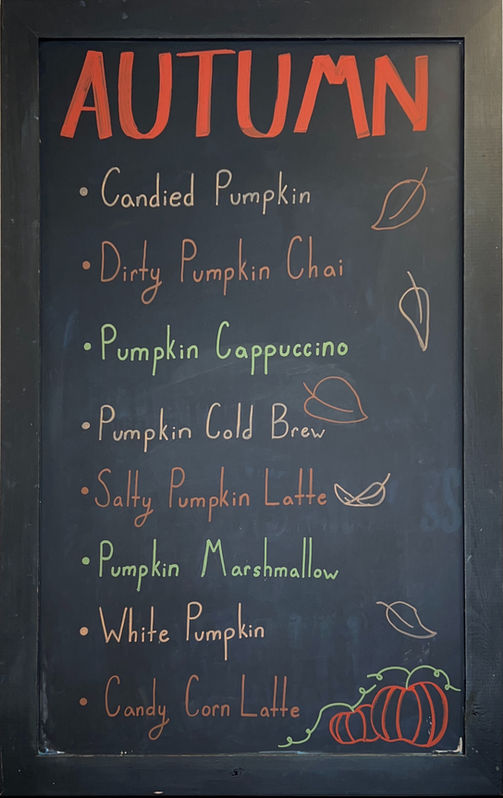 AUTUMN
• Candied Pumpkin
• Dirty Pumpkin Chai
• Pumpkin Cappuccino
• Pumpkin Cold Brew
• Salty Pumpkin Latte
• Pumpkin Marshmallow
• White Pumpkin
• Candy Corn Latte